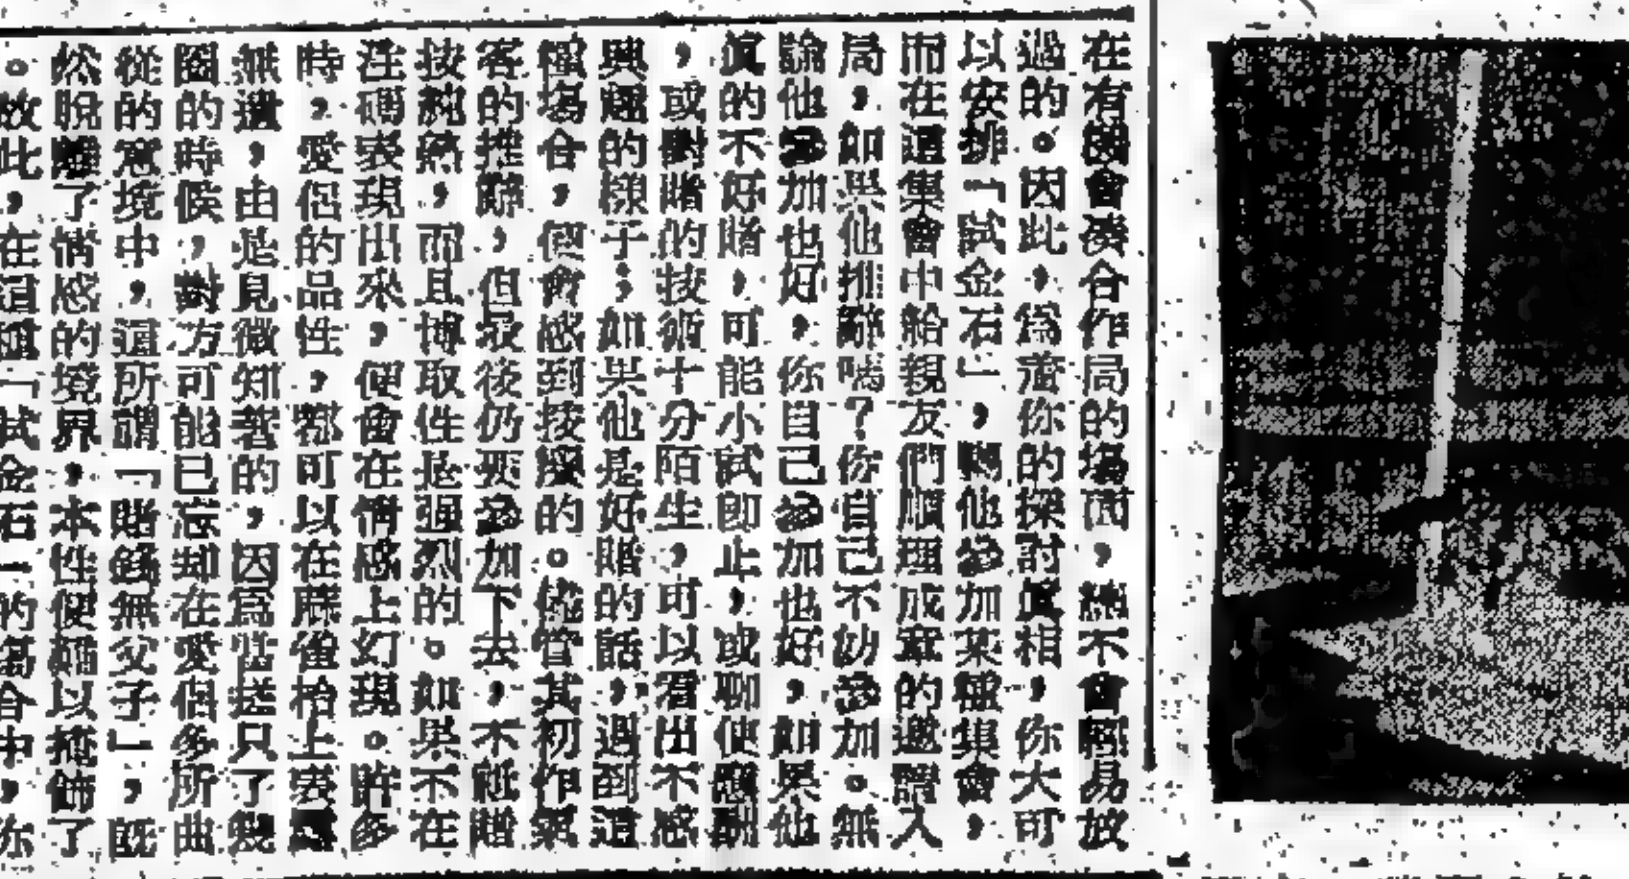 在有機會湊合作局的場面，總不會輕易放
過的。因此，為着你的探討眞相，你大可
以安排「試金石」，賜他參加某種集會，
而在這集會中給親友們順理成章的邀請入
局，如果他推辭嗎？你自己不妨參加。無
論他參加也好，你自己參加也好，如果他
眞的不好賭，可能小試即止，或聊便應酬
，或對賭的技術十分陌生，可以看出不感
興趣的樣子；如果他是好賭的話，遇到這
種場合，便會感到技癢的。儘管其初作氣
客的推辭，但最後仍要參加下去，不祗賭
技純熟，而且博取性是强烈的。如果不在
注碼表現出來，便會在情感上幻現。許多
時，愛侶的品性，都可以在麻雀枱上表露
無遺，由是見微知著的，因爲當送只了幾
圈的時候，對方可能已忘却在愛侶多所曲
從的意境中，這所謂「賭錢無父子」，旣
然脫離了情感的境界，本性便難以掩飾了
。故此，在這種「試金石」的場合中，你